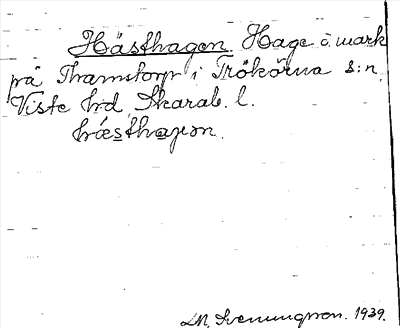 Hästhagen. Hage o. mark
på Thamstorp i Trökörna s:n,
Viste hd, Skarab. l.
hæsthagon.
M. Svenungsson. 1939.